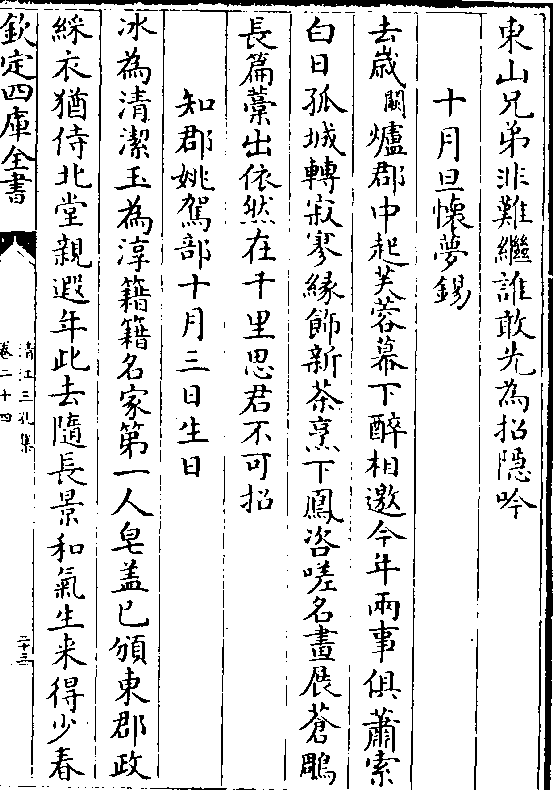 東山兄弟非難繼誰敢先為招隠吟
十月旦懷夢錫
去嵗闗爐郡中起芙蓉幕下醉相邀今年兩事俱蕭索
白日孤城轉寂寥緣飾新茶烹下鳳咨嗟名畫展蒼鵰
長篇藁出依然在千里思君不可招
知郡姚駕部十月三日生日
冰為清潔玉為淳籍籍名家第一人皂盖已頒東郡政
綵衣猶侍北堂親遐年此去隨長景和氣生来得少春
欽定四庫全書
清江三孔集
卷二十四
二十三